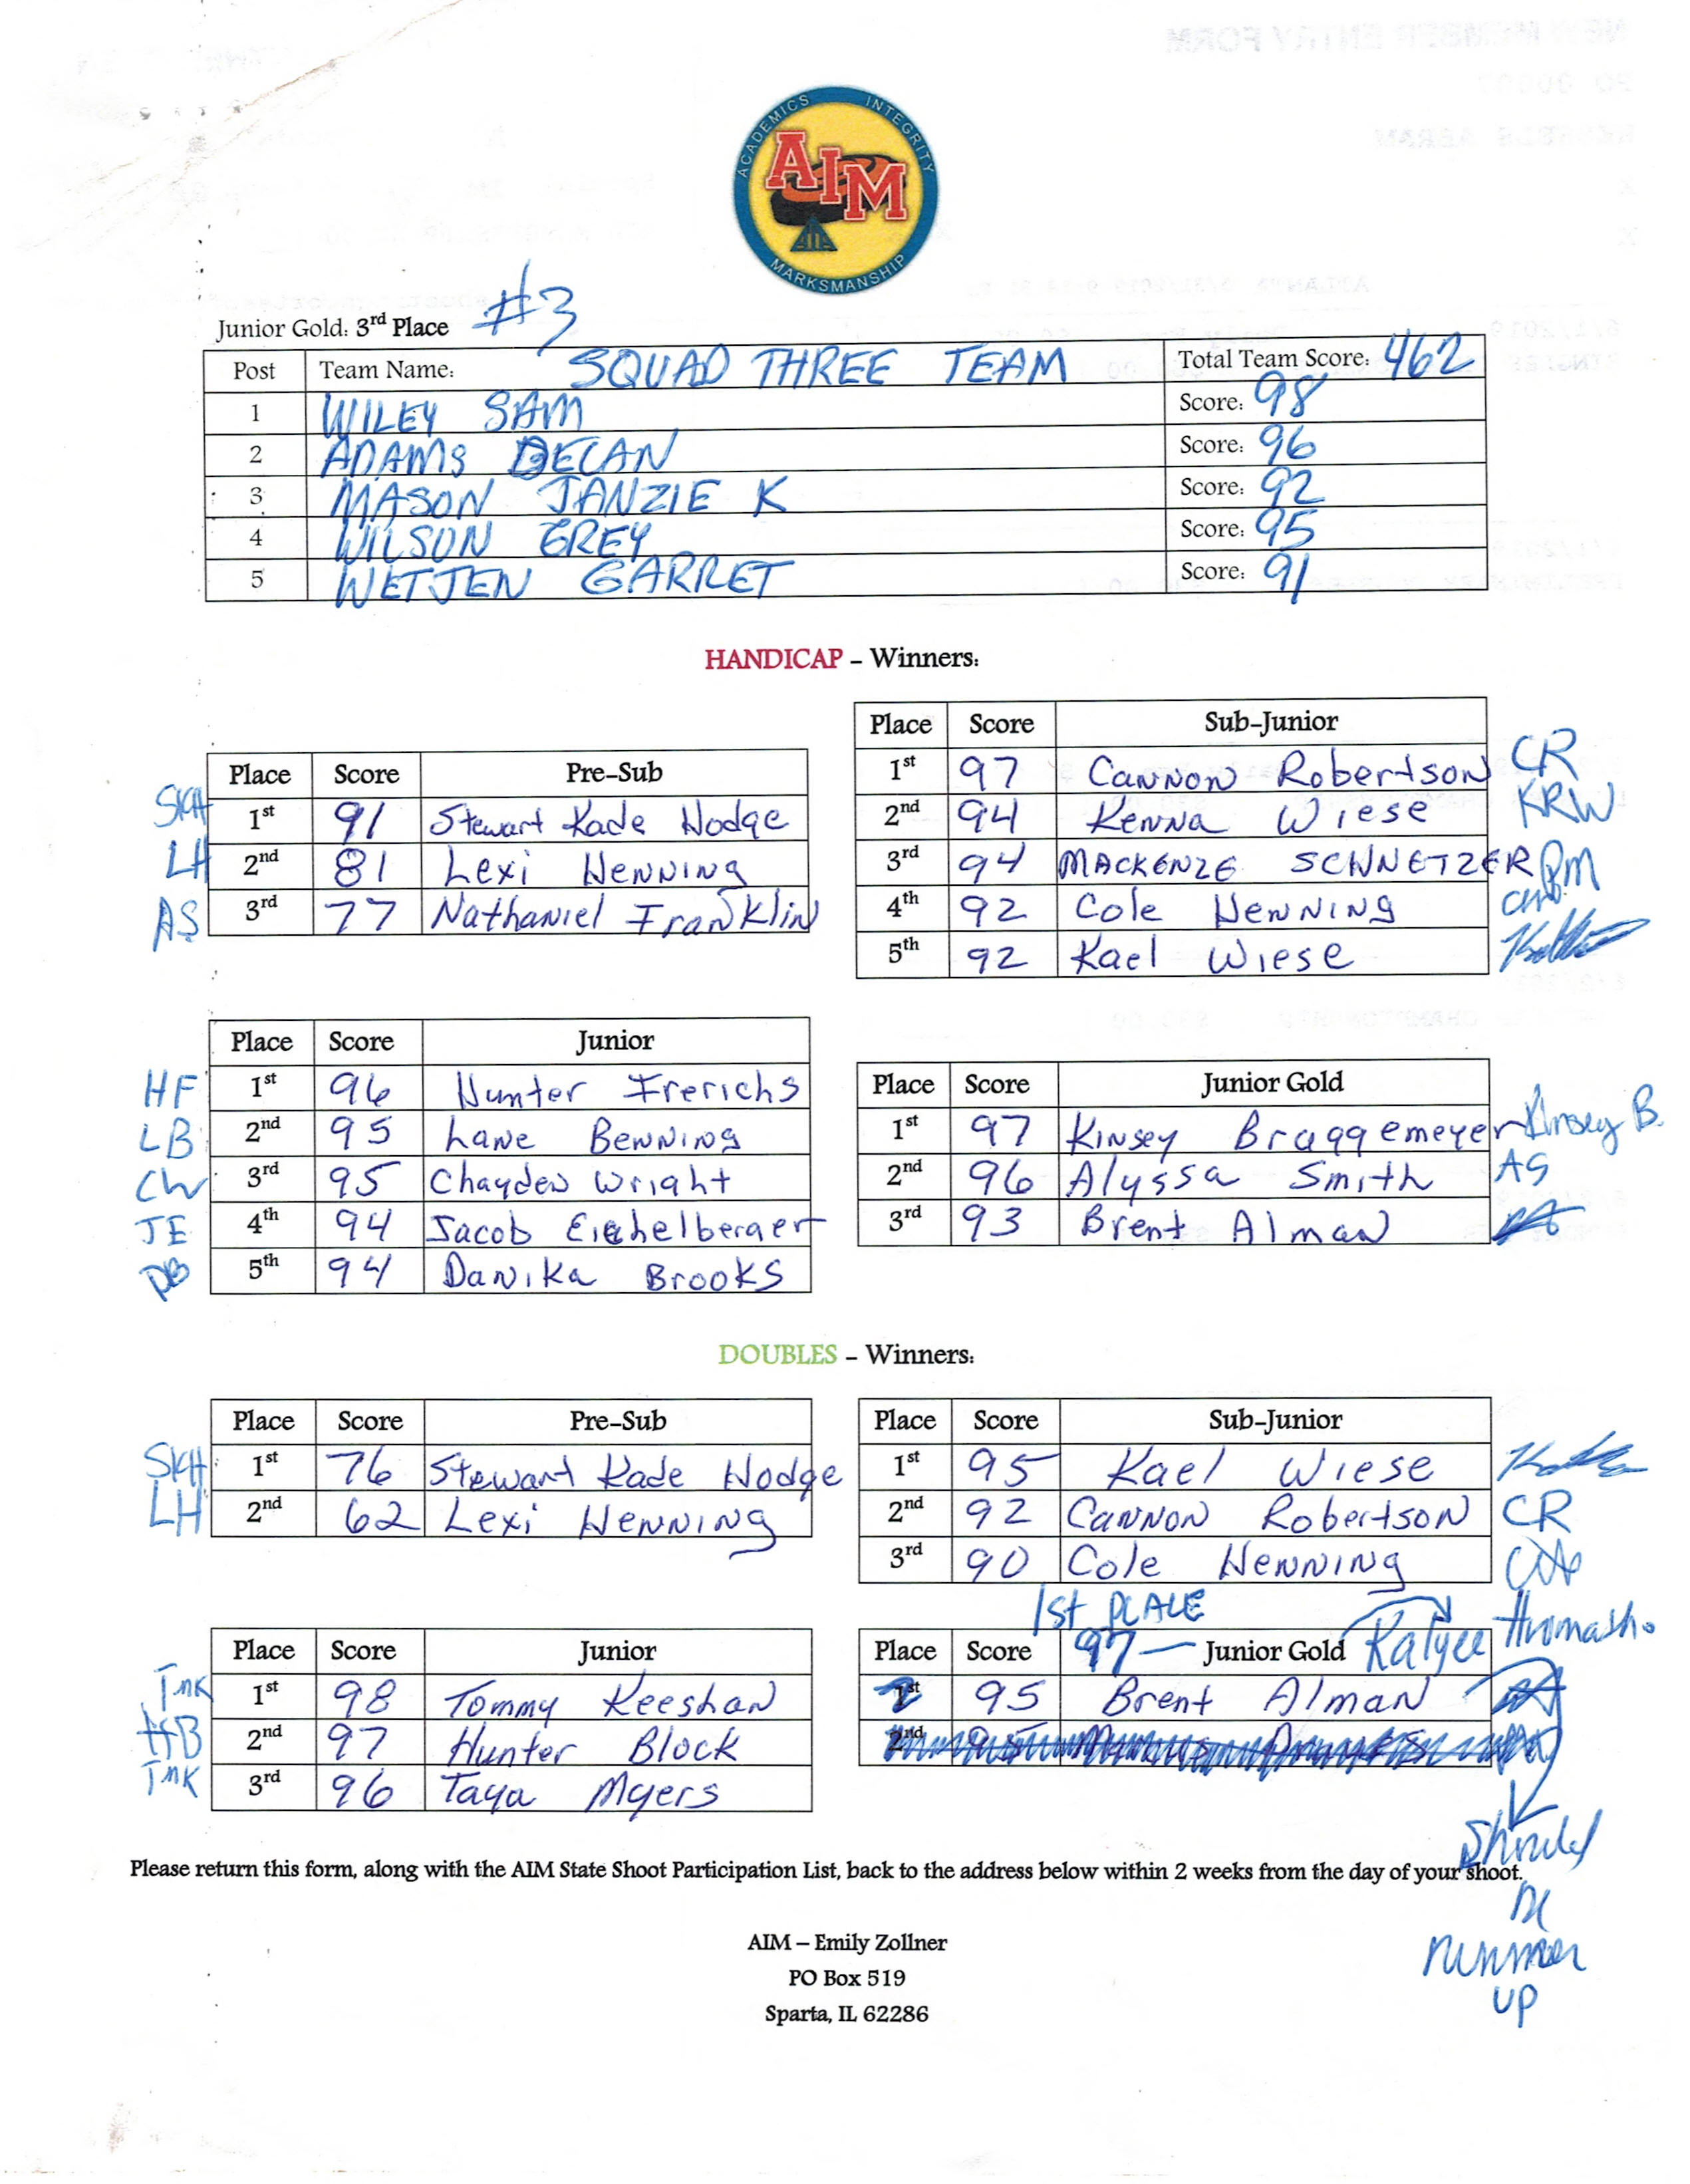 ACADEMICS INTEGRITY
AIM
MARKSMANSHIP
Junior Gold: 3rd Place #3
Post Team Name: SQUAD THREE TEAM Total Team Score: 462
1 WILEY SAM Score: 98
2 ADAMS DECAN Score: 96
3 MASON JANZIE K Score: 92
4 WILSON GREY Score: 95
5 WETJEN GARRET Score: 91
HANDICAP – Winners:
Place Score Pre-Sub
SKH 1st 91 Stewart Kade Hodge
LH 2nd 81 Lexi Henning
AS 3rd 77 Nathaniel Franklin
Place Score Sub-Junior
1st 97 Cannon Robertson CR
2nd 94 Kenna Wiese KRW
3rd 94 MACKENZE SCHNETZER PM
4th 92 Cole Henning
5th 92 Kael Wiese
Place Score Junior
HF 1st 96 Hunter Frerichs
LB 2nd 95 Lane Benning
CW 3rd 95 Chayden Wright
JE 4th 94 Jacob Eichelberger
DB 5th 94 Danika Brooks
Place Score Junior Gold
1st 97 Kinsey Braggemeyer Kinsey B.
2nd 96 Alyssa Smith AS
3rd 93 Brent Alman
DOUBLES – Winners:
Place Score Pre-Sub
SKH 1st 76 Stewart Kade Hodge
LH 2nd 62 Lexi Henning
Place Score Sub-Junior
1st 95 Kael Wiese
2nd 92 Cannon Robertson CR
3rd 90 Cole Henning
Place Score Junior
TMK 1st 98 Tommy Keeshan
HB 2nd 97 Hunter Block
TMK 3rd 96 Taya Myers
1st PLACE
Place Score 97 — Junior Gold Kalyee
2 95 Brent Alman
2nd
Should
be
runner
up
Please return this form, along with the AIM State Shoot Participation List, back to the address below within 2 weeks from the day of your shoot.
AIM – Emily Zollner
PO Box 519
Sparta, IL 62286